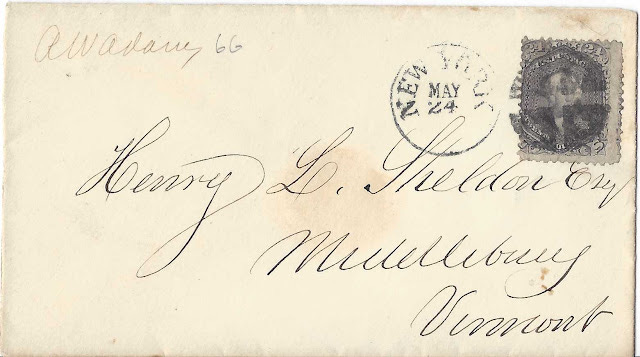 A W Adams 66
NEW YORK
MAY
24
24 24
Henry L. Sheldon Esq
Middlebury
Vermont